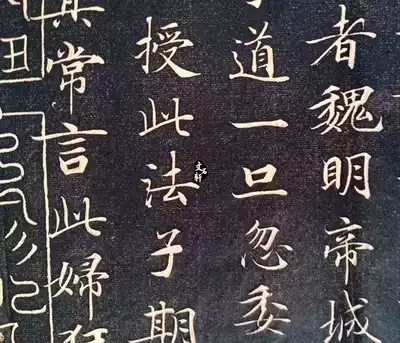 者魏明帝城
道一旦忽委
授此法子期
其常言此婦
丑